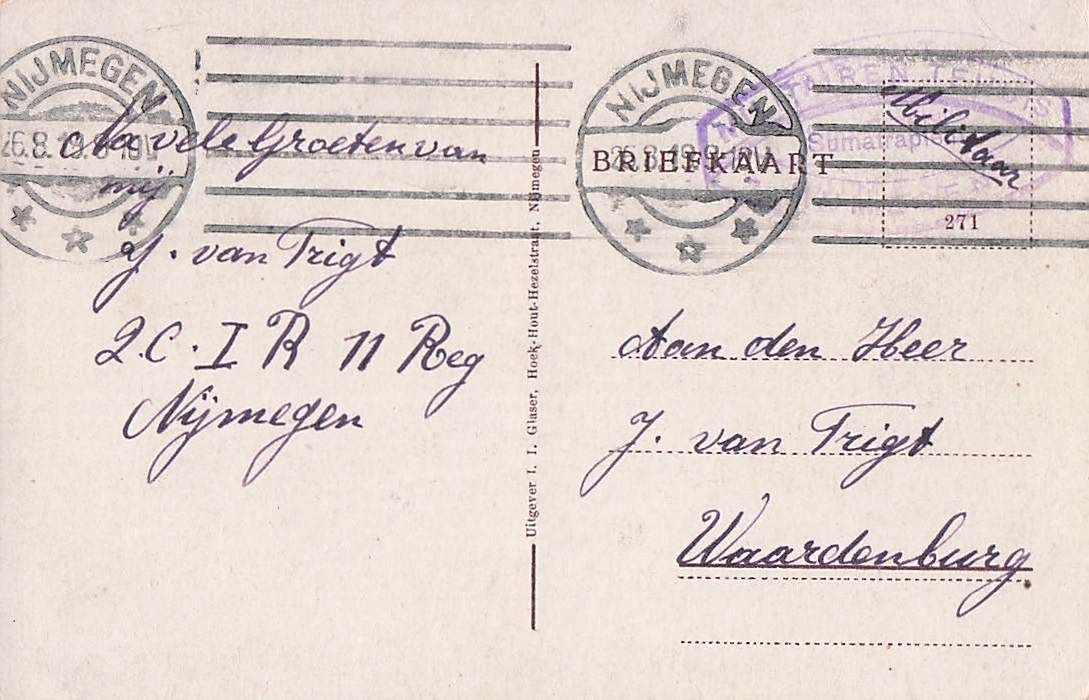 NIJMEGEN
Na vele Groeten van
mij
J. van Trigt
2.C. I R 11 Reg
Nijmegen
Uitgever I. I. Glaser, Hoek-Hout-Hezelstraat, Nijmegen
NIJMEGEN
BRIEFKAART
Militair
271
Aan den Heer
J. van Trigt
Waardenburg